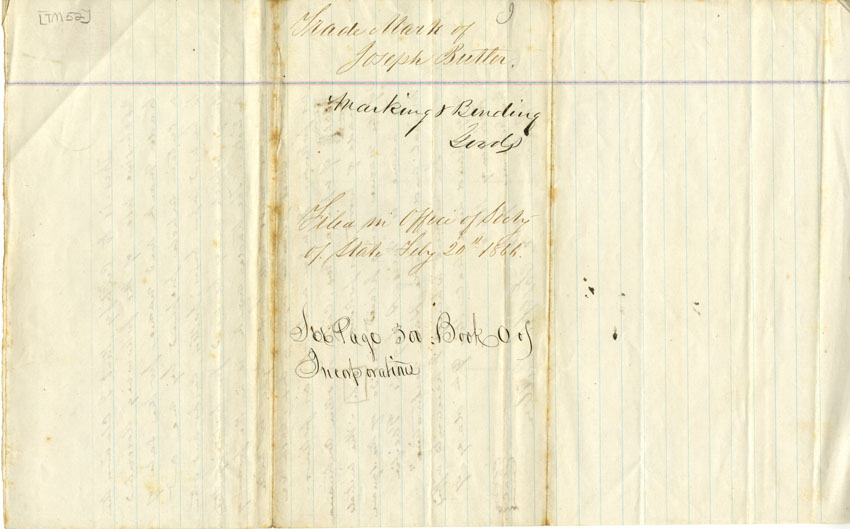 [TM52]
Trade Mark of
Joseph Butler.
Marking & Bending
Goods
Filed in Office of Secty
of State Feby 20th 1866.
See Page 50. Book O of
Incorporations